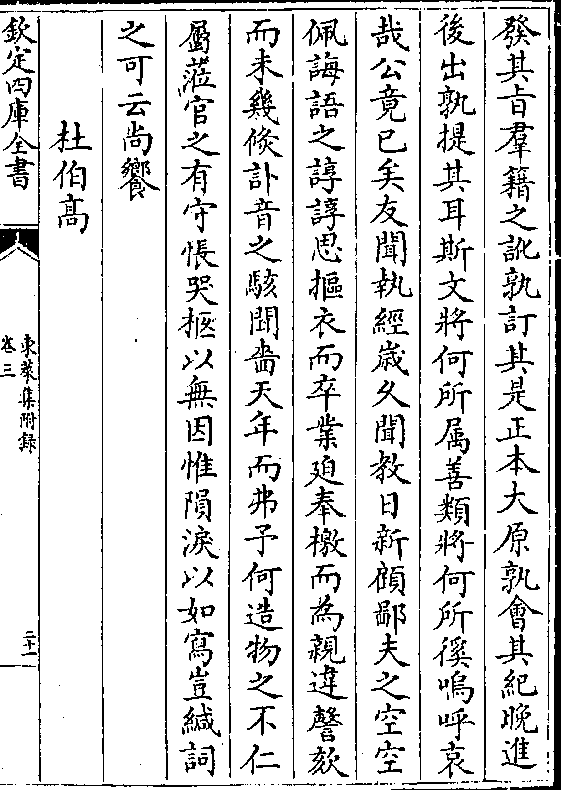 發其㫖羣籍之訛孰訂其是正本大原孰會其紀晚進
後出孰提其耳斯文將何所属善類將何所徯嗚呼哀
哉公竟已矣友聞執經嵗久聞教日新顧鄙夫之空空
佩誨語之諄諄思摳衣而卒業廹奉檄而為親違謦欬
而未幾倐訃音之駭聞嗇天年而弗予何造物之不仁
屬蒞官之有守悵哭柩以無因惟隕淚以如寫豈緘詞
之可云尚饗
杜伯髙
欽定四庫全書
東萊集附録
卷三
二十二